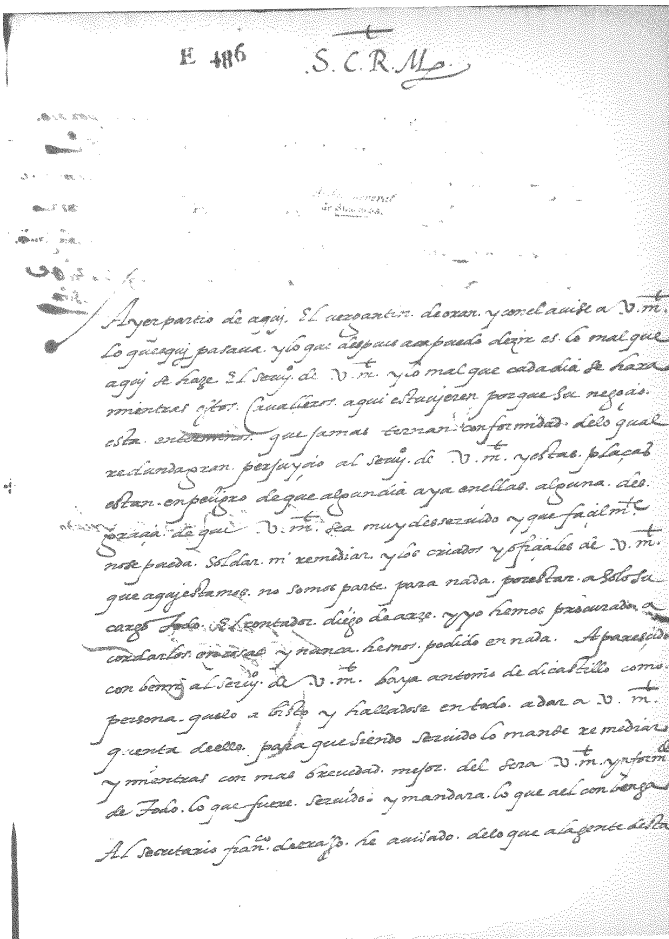 E 486
S. C. R. M.
Ayer partio de aquj. El vergantin. de oran. y con el auise a V. mt.
lo que aquj pasaua. y lo que despues aca puedo dezir es. lo mal que
aquj se haze. El seruyo. de V. mt. y lo mal que cada dia se hara
mientras estos. Cavalleros. aqui estuvieren porque su negocio.
esta. en terminos. que jamas ternan conformidad. de lo qual
redunda gran. perjuyzio al seruyo. de V. mt. y estas. plaças
estan. en peligro de que algun dia aya en ellas. alguna. des
graçia. de que V. mt. sea muy desseruido y que façilmte.
no se pueda. Soldar. ni remediar. y los criados y ofiçiales de V. mt.
que aquj estamos. no somos parte. para nada. por estar. a solo su
cargo Todo. El contador. diego de arze. y yo hemos procurado. a
cordarlos. en casas y nunca. hemos. podido en nada. A pareçido
con benir al seruyo. de V. mt. baya antonio de dicastillo como
persona. que lo a bisto y halladose en todo. a dar a V. mt.
quenta de ello. para que siendo seruido lo mande remediar
y mientras con mas brevedad. mejor. del sera V. mt. ynform
de Todo. lo que fuere. seruido. y mandara. lo que a el conbenga
Al secretario franco. de erasso. he auisado. de lo que a la gente desta